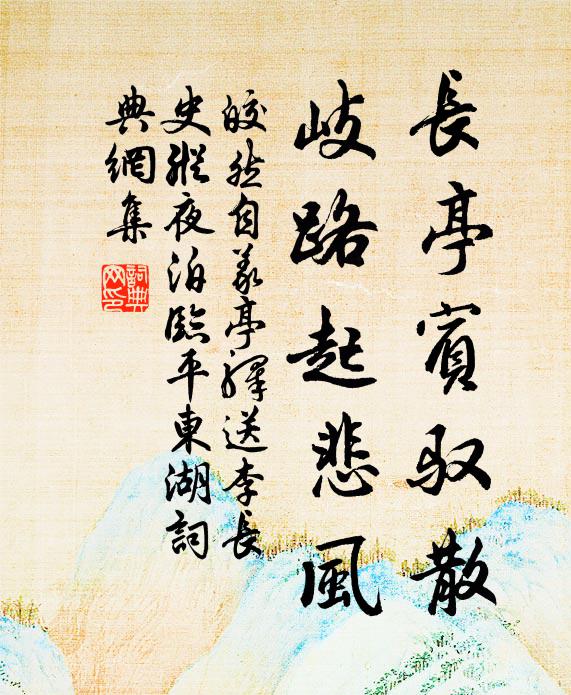 長亭賓馭散
歧路起悲風
皎然自義亭驛送李長
史縱夜泊臨平東湖詞
典網集
詞典網印